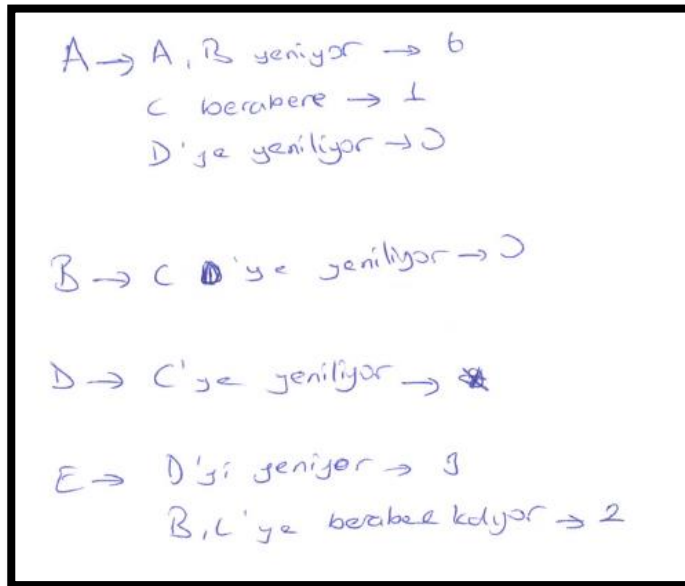 A → A, B yeniyor → 6
C berabere → 1
D'ye yeniliyor → 0
B → C 'ye yeniliyor → 0
D → C'ye yeniliyor →
E → D'yi yeniyor → 3
B, C'ye berabee kalıyor → 2